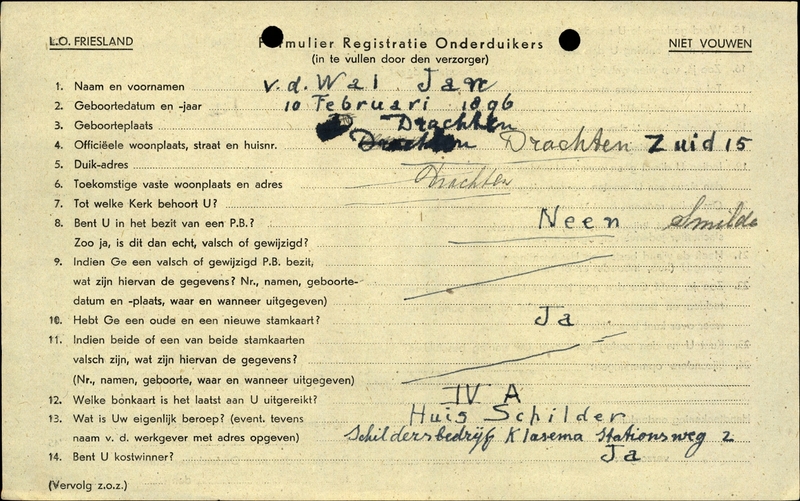 L.O. FRIESLAND
Formulier Registratie Onderduikers
NIET VOUWEN
(in te vullen door den verzorger)
1. Naam en voornamen v.d. Wal Jan
2. Geboortedatum en -jaar 10 Februari 1896
3. Geboorteplaats Drachten
4. Officiëele woonplaats, straat en huisnr. Drachten Drachten Zuid 15
5. Duik-adres
6. Toekomstige vaste woonplaats en adres Drachten
7. Tot welke Kerk behoort U?
8. Bent U in het bezit van een P.B.? Neen Smilde
Zoo ja, is dit dan echt, valsch of gewijzigd?
9. Indien Ge een valsch of gewijzigd P.B. bezit,
wat zijn hiervan de gegevens? Nr., namen, geboorte-
datum en -plaats, waar en wanneer uitgegeven)
10. Hebt Ge een oude en een nieuwe stamkaart? Ja
11. Indien beide of een van beide stamkaarten
valsch zijn, wat zijn hiervan de gegevens?
(Nr., namen, geboorte, waar en wanneer uitgegeven)
12. Welke bonkaart is het laatst aan U uitgereikt? IV A
13. Wat is Uw eigenlijk beroep? (event. tevens Huis Schilder
naam v. d. werkgever met adres opgeven) Schildersbedrijf Klasema Stationsweg 2
14. Bent U kostwinner? Ja
(Vervolg z.o.z.)